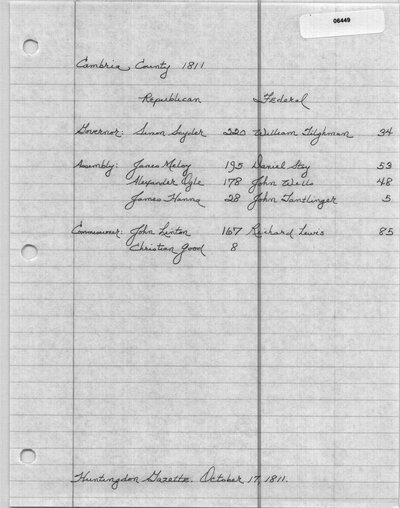 06449
Cambria County 1811
Republican Federal
Governor: Simon Snyder 220 William Tilghman 34
Assembly: James Meloy 195 Daniel Stoy 53
Alexander Ogle 178 John Wells 48
James Hanna 28 John Tantlinger 5
Commissioner: John Linton 167 Richard Lewis 85
Christian Good 8
Huntingdon Gazette. October 17, 1811.